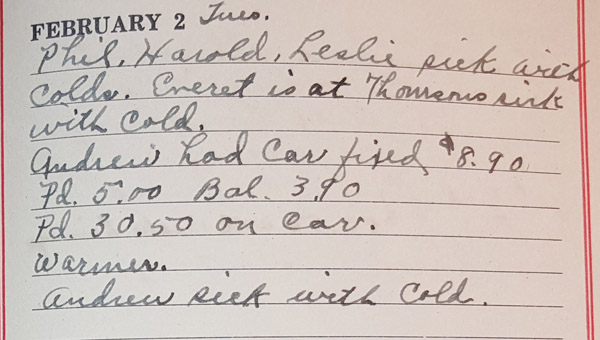 FEBRUARY 2 Tues.
Phil, Harold, Leslie sick with
colds. Everet is at Thomsons sick
with cold.
Andrew had Car fixed, $8.90
Pd. 5.00 Bal. 3.90
Pd. 30.50 on Car.
Warmer.
Andrew sick with Cold.